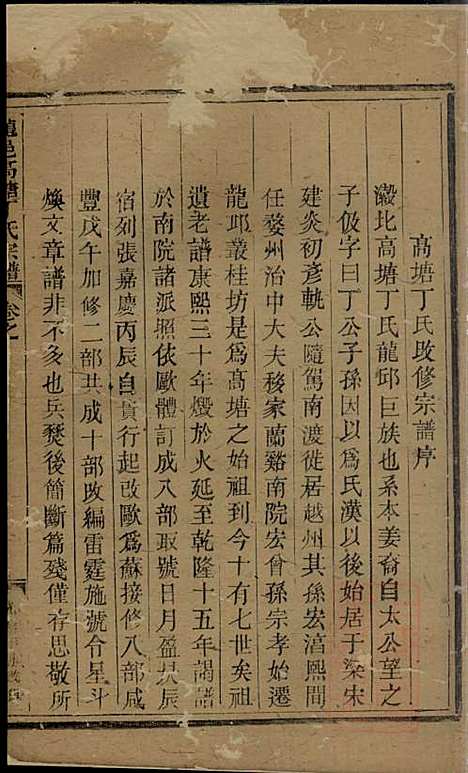 高塘丁氏改修宗譜序
瀫北高塘丁氏龍邱巨族也系本姜裔自太公望之
子伋字曰丁公子孫因以爲氏漢以後始居于梁宋
建炎初彥軌公隨駕南渡徙居越州其孫宏淯熙間
任婺州治中大夫移家蘭谿南院宏曾孫宗孝始遷
龍邱叢桂坊是爲高塘之始祖到今十有七世矣祖
遺老譜康熙三十年燬於火延至乾隆十五年謁譜
於南院諸派照依歐體訂成八部取號日月盈昃辰
宿列張嘉慶丙辰自寔行起改歐爲蘇接修八部咸
豐戊午加修二部共成十部改編雷霆施號合星斗
煥文章譜非不多也兵燹後簡斷篇殘僅存思敬所
龍邑高塘丁氏宗譜 卷之一